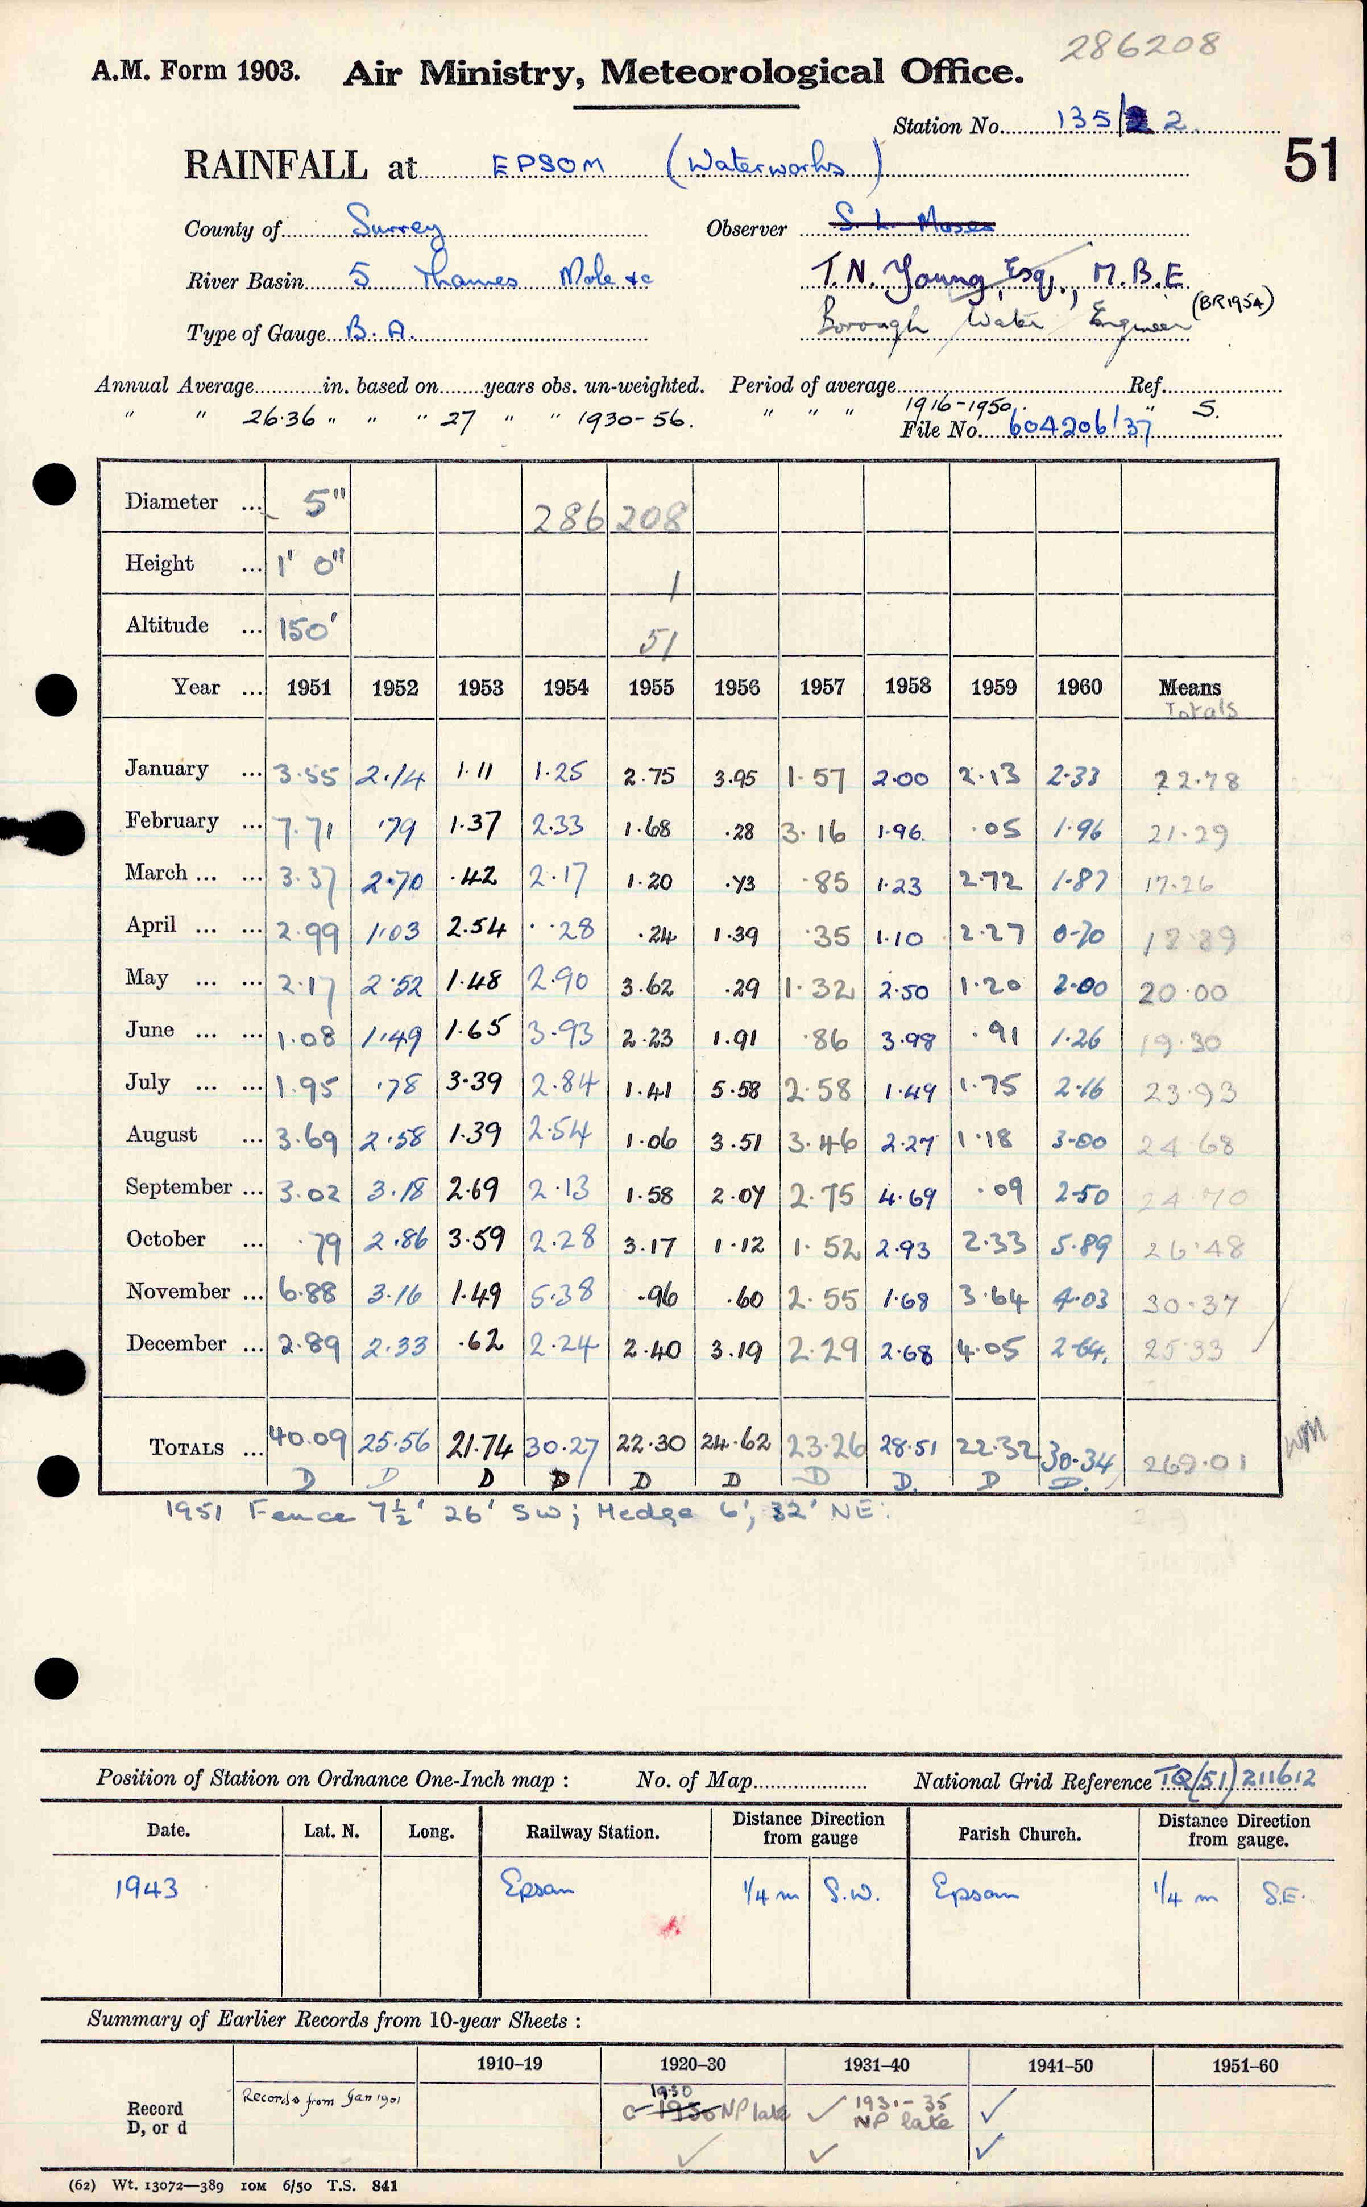 286208
A.M. Form 1903. Air Ministry, Meteorological Office.
Station No. 135/2 2.
51
RAINFALL at EPSOM (Waterworks)
County of Surrey Observer S. L. Moses
River Basin 5 Thames Mole &c T.N. Young, Esq., M.B.E
Type of Gauge B. A. Borough Water Engineer (BR1954)
Annual Average in. based on years obs. un-weighted. Period of average Ref.
" " 26.36 " " " 27 " " 1930-56. " " " 1916-1950. " S.
File No. 604206/37
Diameter ... 5" 286 208
Height ... 1' 0" 1
Altitude ... 150' 51
Year ... 1951 1952 1953 1954 1955 1956 1957 1958 1959 1960 Means
Totals
January ... 3.55 2.14 1.11 1.25 2.75 3.95 1.57 2.00 2.13 2.33 22.78
February ... 7.71 .79 1.37 2.33 1.68 .28 3.16 1.96 .05 1.96 21.29
March ... ... 3.37 2.70 .42 2.17 1.20 .73 .85 1.23 2.72 1.87 17.26
April ... ... 2.99 1.03 2.54 .28 .24 1.39 .35 1.10 2.27 0.70 12.89
May ... ... 2.17 2.52 1.48 2.90 3.62 .29 1.32 2.50 1.20 2.00 20.00
June ... ... 1.08 1.49 1.65 3.93 2.23 1.91 .86 3.98 .91 1.26 19.30
July ... ... 1.95 .78 3.39 2.84 1.41 5.58 2.58 1.49 1.75 2.16 23.93
August ... 3.69 2.58 1.39 2.54 1.06 3.51 3.46 2.27 1.18 3.00 24.68
September ... 3.02 3.18 2.69 2.13 1.58 2.07 2.75 4.69 .09 2.50 24.70
October ... .79 2.86 3.59 2.28 3.17 1.12 1.52 2.93 2.33 5.89 26.48
November ... 6.88 3.16 1.49 5.38 .96 .60 2.55 1.68 3.64 4.03 30.37
December ... 2.89 2.33 .62 2.24 2.40 3.19 2.29 2.68 4.05 2.64. 25.33
TOTALS ... 40.09 25.56 21.74 30.27 22.30 24.62 23.26 28.51 22.32 30.34 269.01 WM
D D D D D D D D. D D.
1951 Fence 7½' 26' SW; Hedge 6', 32' NE.
Position of Station on Ordnance One-Inch map : No. of Map National Grid Reference TQ(51)211612
Date. Lat. N. Long. Railway Station. Distance Direction from gauge Parish Church. Distance Direction from gauge.
1943 Epsom 1/4 m S.W. Epsom 1/4 m S.E.
Summary of Earlier Records from 10-year Sheets :
1910–19 1920–30 1931–40 1941–50 1951–60
Record D, or d Records from Jan 1901 1930 C 1930 NP late ✓ 1931-35 NP late ✓
✓ ✓ ✓
(62) Wt. 13072—389 10M 6/50 T.S. 841